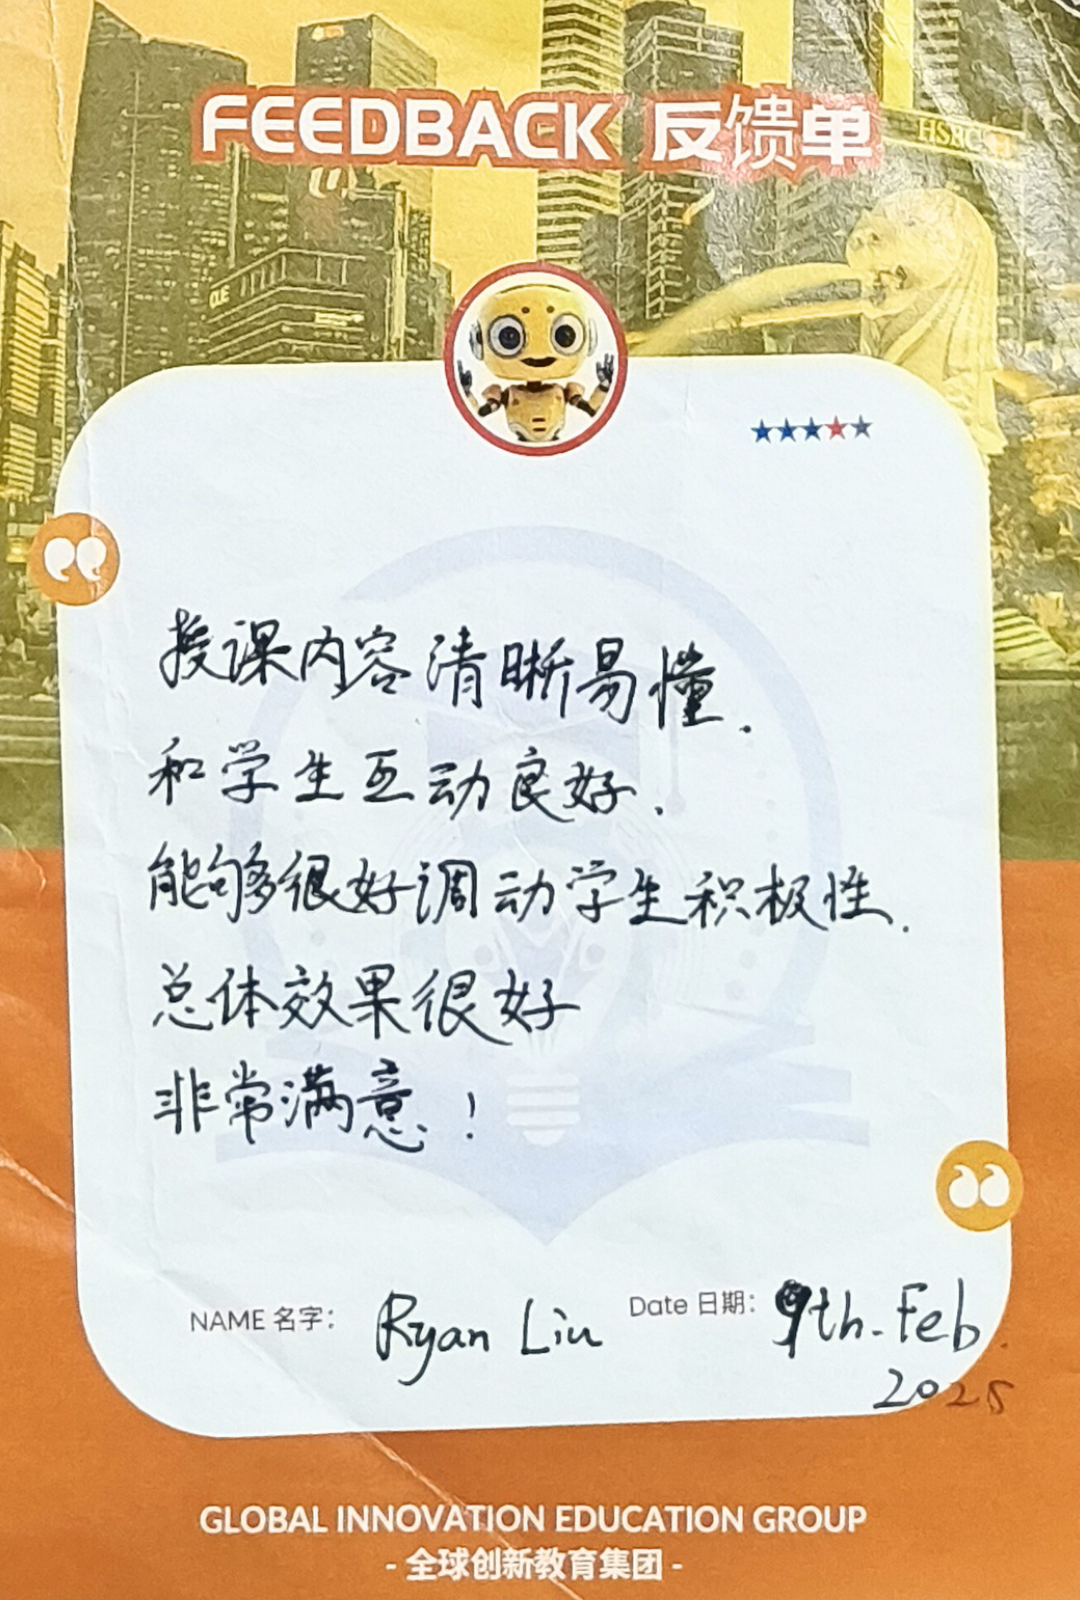 FEEDBACK 反馈单
HSBC
CUE
授课内容清晰易懂.
和学生互动良好.
能够很好调动学生积极性.
总体效果很好
非常满意!
NAME 名字: Ryan Liu
Date 日期: 9th. Feb
2025
GLOBAL INNOVATION EDUCATION GROUP
- 全球创新教育集团 -